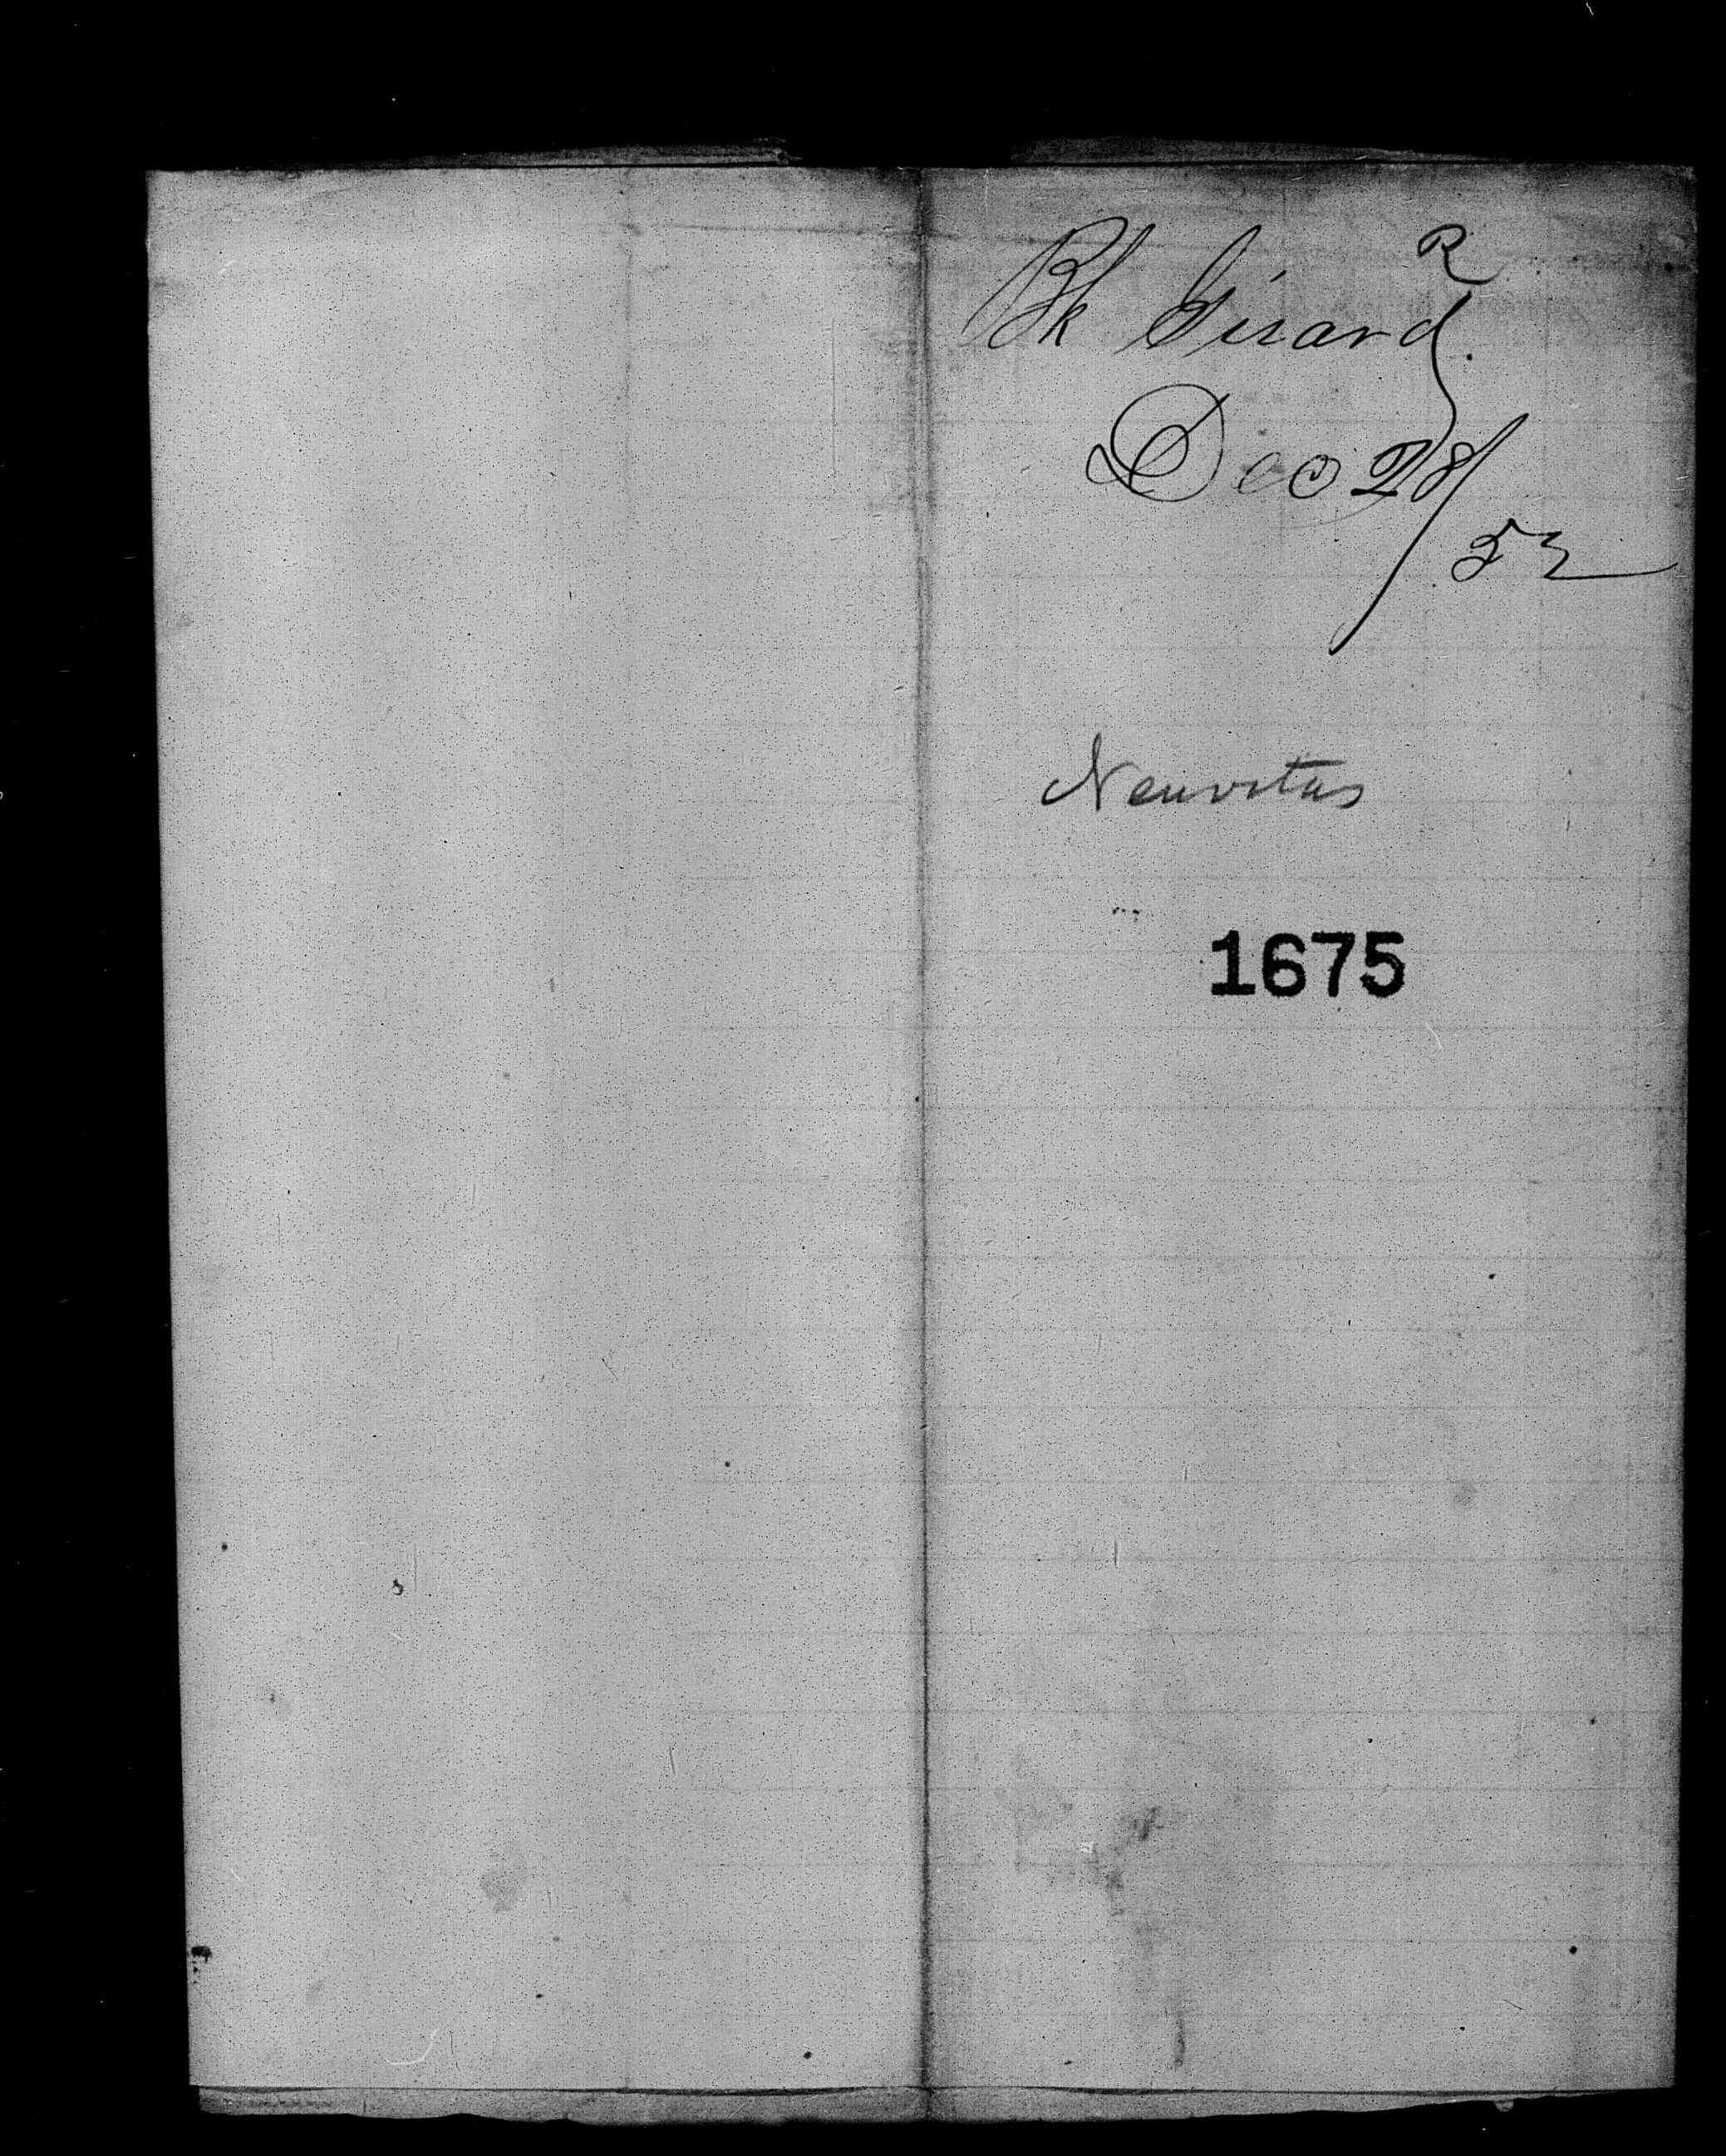 R
Bk Girard.
Dec 28/
52
Neuvitas
1675